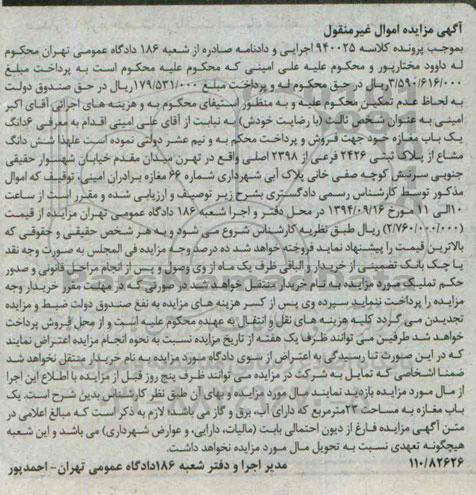 آگهی مزایده اموال غیرمنقول
بموجب پرونده کلاسه ۹۴۰۰۲۵ اجرایی و دادنامه صادره از شعبه ۱۸۶ دادگاه عمومی تهران محکوم
له داوود مختارپور و محکوم علیه علی امینی که محکوم علیه محکوم است به پرداخت مبلغ
۳/۵۹۰/۶۱۶/۰۰۰ریال در حق محکوم له و پرداخت مبلغ ۱۷۹/۵۳۱/۰۰۰ریال در حق صندوق دولت
به لحاظ عدم تمکین محکوم علیه و به منظور استیفای محکوم به و هزینه های اجرائی آقای اکبر
امینی به عنوان شخص ثالث (با رضایت خودش) به نیابت از آقای علی امینی اقدام به معرفی ۶دانگ
یک باب مغازه خود جهت فروش و پرداخت محکم به و نیم عشر دولتی نموده است علهذا شش دانگ
مشاع از پلاک ثبتی ۲۴۲۶ فرعی از ۲۳۹۸ اصلی واقع در تهران میدان مقدم خیابان شهسوار حقیقی
جنوبی سرنبش کوچه صفی خانی پلاک آبی شهرداری شماره ۶۶ مغازه برادران امینی، توقیف که اموال
مذکور توسط کارشناس رسمی دادگستری بشرح زیر توصیف و ارزیابی شده و مقرر است از ساعت
۱۰الی ۱۱ مورخ ۱۳۹۴/۰۹/۱۶ در محل دفتر و اجرا شعبه ۱۸۶ دادگاه عمومی تهران مزایده از قیمت
(۲/۷۶۰/۰۰۰/۰۰۰) ریال طبق نظریه کارشناس شروع می شود و به هر شخص حقیقی و حقوقی که
بالاترین قیمت را پیشنهاد نماید فروخته خواهد شد ده درصد وجه مزایده فی المجلس به صورت وجه نقد
یا چک بانک تضمینی از خریدار و الباقی ظرف یک ماه از وی وصول و پس از انجام مراحل قانونی و صدور
حکم تملیک مورد مزایده به نام خریدار منتقل خواهد شد در صورتی که در مهلت مقرر خریدار وجه
مزایده را پرداخت ننماید سپرده وی پس از کسر هزینه های مزایده به نفع صندوق دولت ضبط و مزایده
تجدیدن می گردد کلیه هزینه های نقل و انتقال به عهده محکوم علیه است و از محل فروش پرداخت
خواهد شد طرفین می توانند ظرف یک هفته از تاریخ مزایده نسبت به نحوه انجام مزایده اعتراض نمایند
که در این صورت تا رسیدگی به اعتراض از سوی دادگاه مورد مزایده به نام خریدار منتقل نخواهد شد
ضمنا اشخاصی که تمایل به شرکت در مزایده می توانند ظرف پنج روز قبل از مزایده با اطلاع این اجرا
از مال مورد مزایده بازدید نمایند مال مورد مزایده و بهای آن طبق نظر کارشناس بدین شرح است. یک
باب مغازه به مساحت ۲۳مترمربع که دارای آب، برق و گاز می باشد؛ لازم به ذکر است که مبالغ اعلامی در
متن آگهی مزایده فارغ از دیون احتمالی بابت (مالیات، دارایی، و عوارض شهرداری) می باشد و این شعبه
هیچگونه تعهدی نسبت به تحویل مال مورد مزایده نخواهد داشت.
۱۱۰/۸۲۶۲۶ مدیر اجرا و دفتر شعبه ۱۸۶دادگاه عمومی تهران- احمدپور